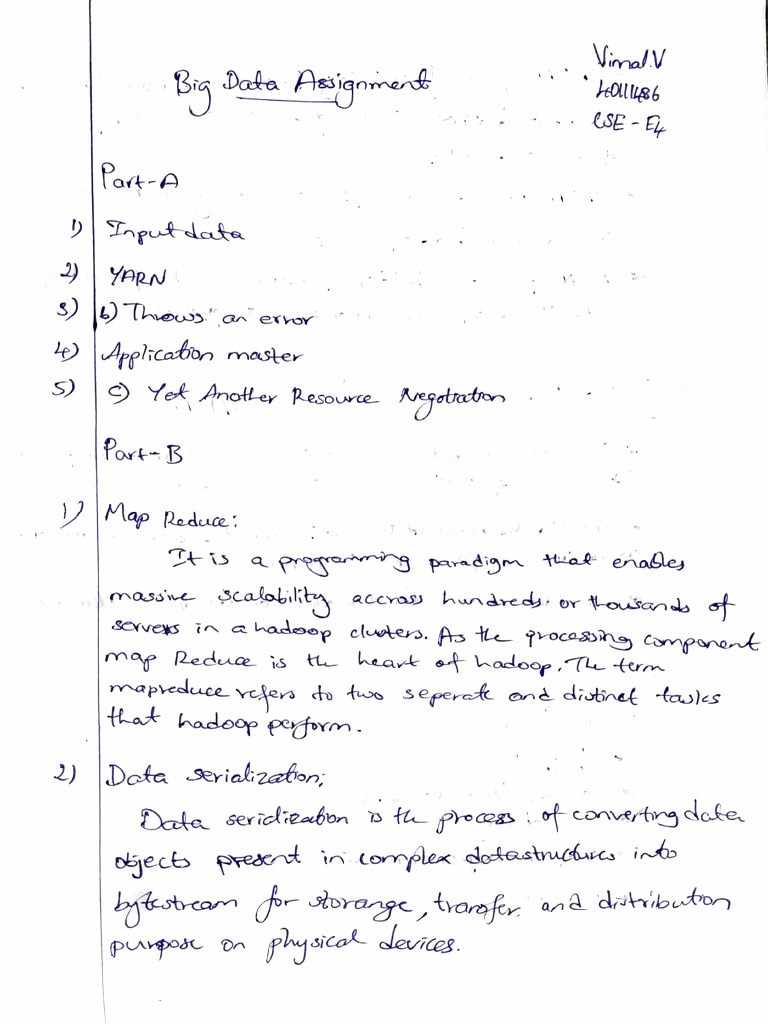 Vimal.V
Big Data Assignment
40111486
CSE - E4
Part-A
1) Input data
2) YARN
3) b) Throws an error
4) Application master
5) c) Yet Another Resource Negotration
Part-B
1) Map Reduce:
It is a programming paradigm that enables
massive scalability accrass hundreds or thousands of
servers in a hadoop clusters. As the processing component
map Reduce is the heart of hadoop. The term
mapreduce refers to two seperate and distinct tasks
that hadoop perform.
2) Data serialization:
Data serialization is the process of converting data
objects present in complex datastructures into
bytestream for storange, transfer and distribution
purpose on physical devices.